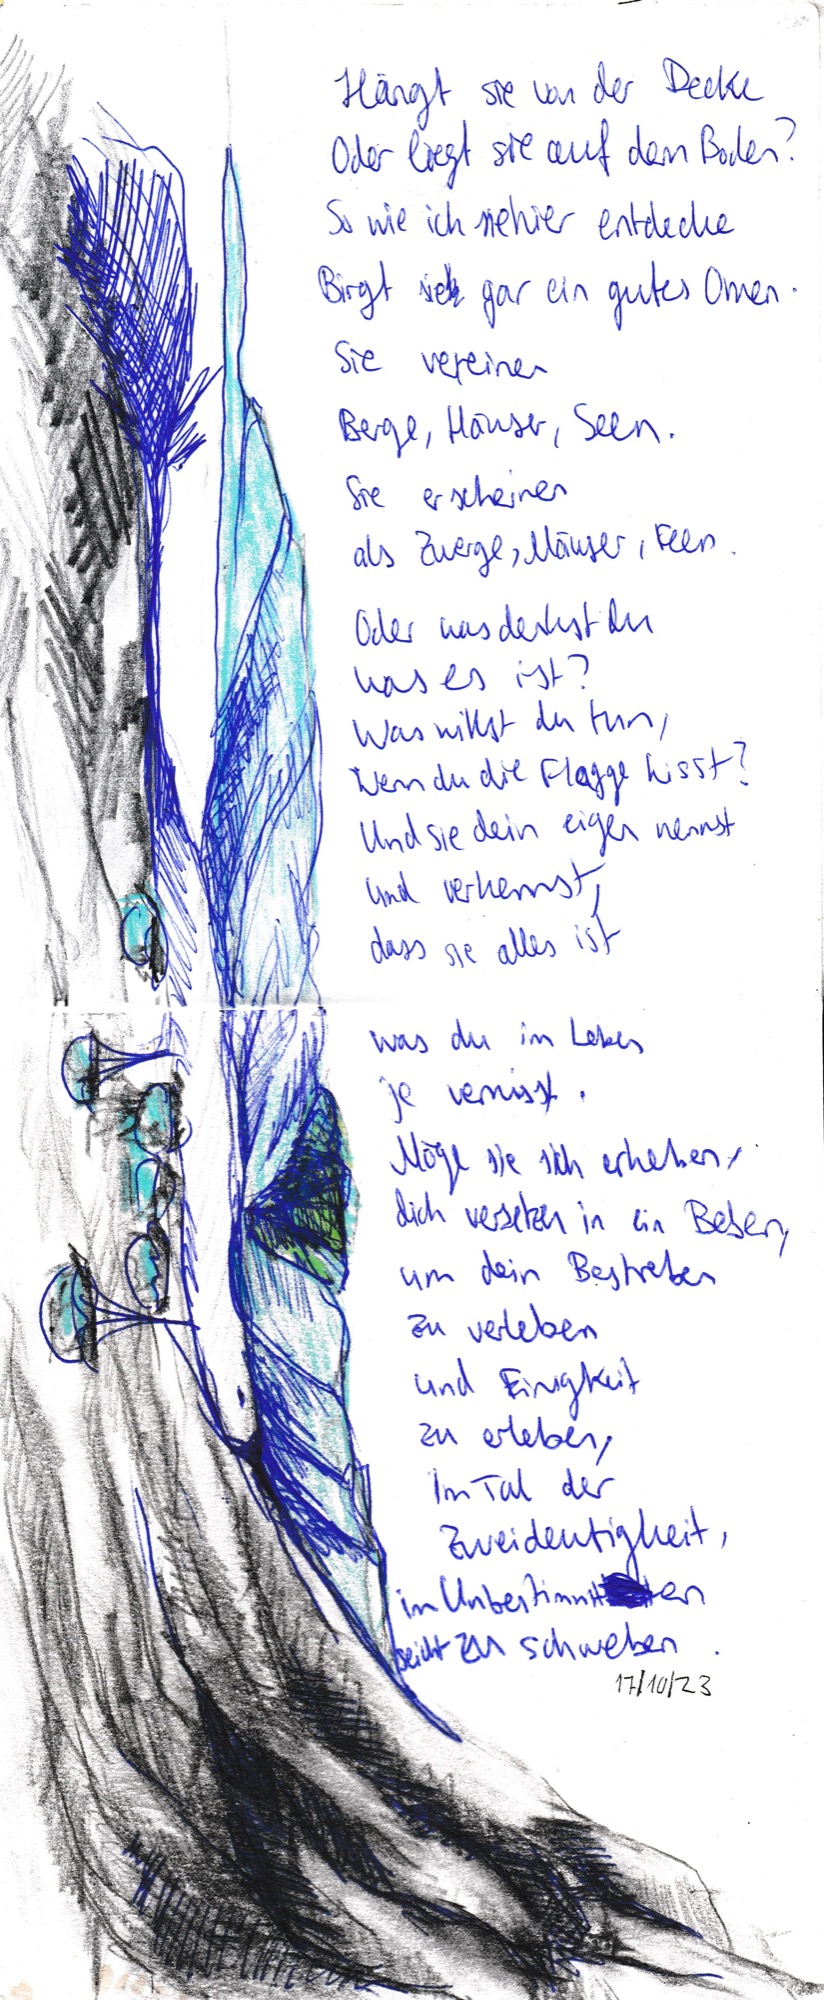 Hängt sie von der Decke
Oder liegt sie auf dem Boden?
So wie ich sie hier entdecke
Birgt sich gar ein gutes Omen.
Sie vereinen
Berge, Häuser, Seen.
Sie erscheinen
als Zwerge, Mäuser, Feen.
Oder was denkst du
was es ist?
Was willst du tun,
Wenn du die Flagge hisst?
Und sie dein eigen nennst
und verkennst,
dass sie alles ist
was du im Leben
je vermisst.
Möge sie sich erheben,
dich versetzen in ein Beben,
um dein Bestreben
zu verleben
und Einigkeit
zu erleben,
Im Tal der
Zweideutigkeit,
im Unbestimmten
seicht zu schweben.
17/10/23